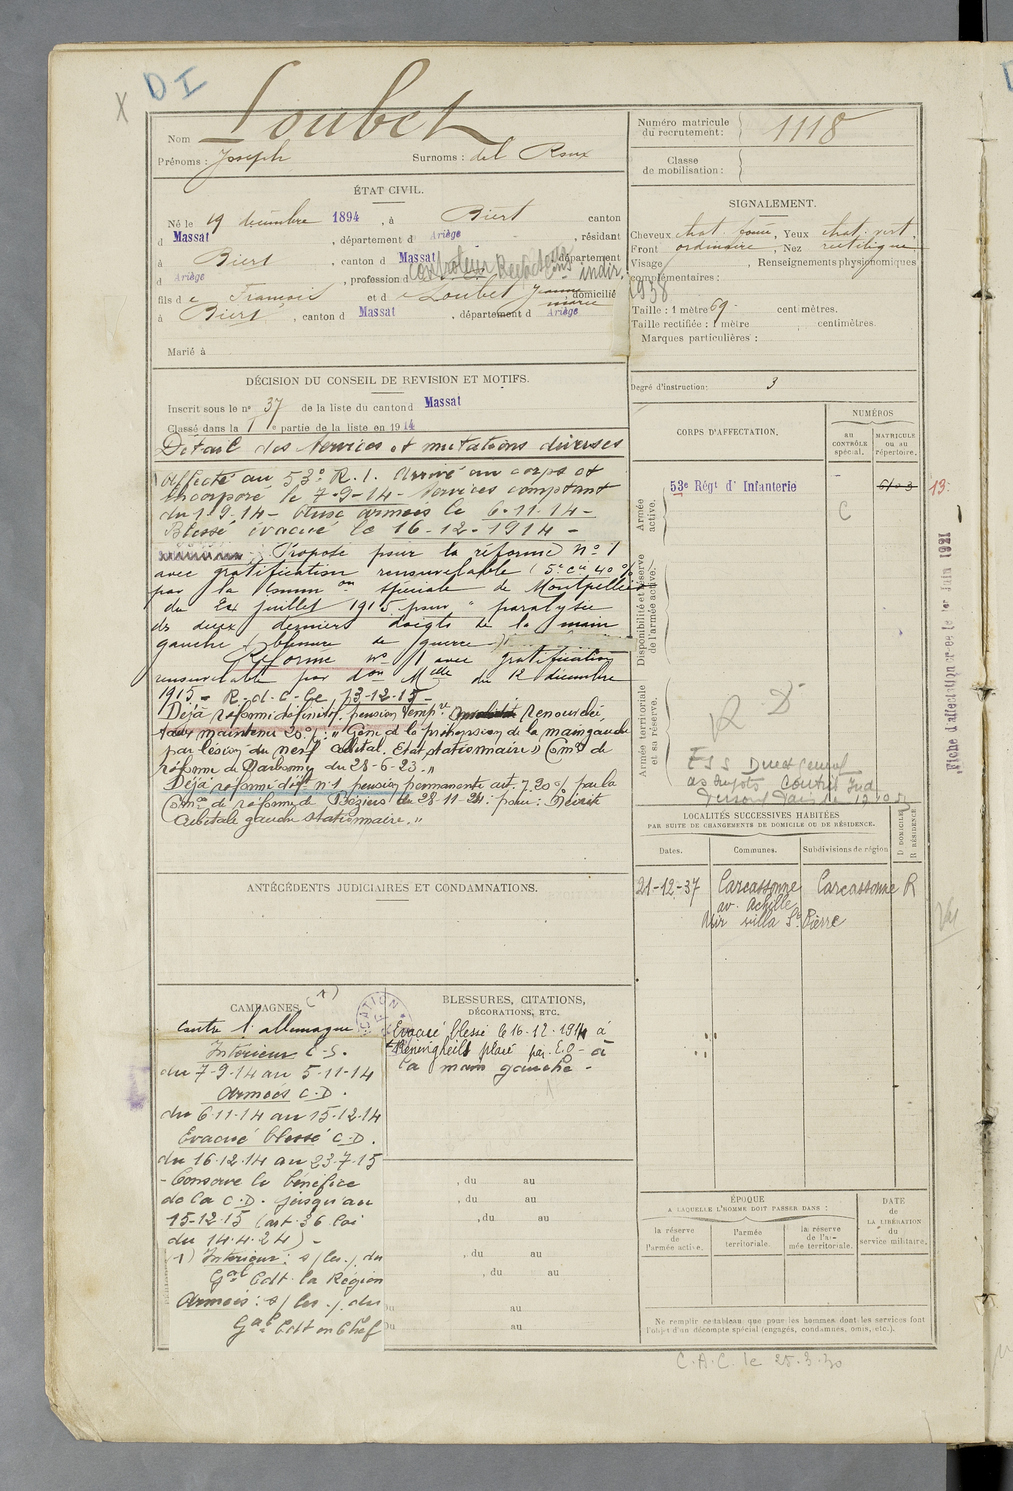 D I
X
Nom Loubet
Prénoms : Joseph Surnoms : del Roux
Numéro matricule
du recrutement : 1118
Classe
de mobilisation :
ÉTAT CIVIL.
Né le 19 décembre 1894, à Biert canton
d Massat, département d Ariège, résidant
à Biert, canton d Massat, département
d Ariège, profession d contrôleur indir.
fils d e François et d e Loubet Jeanne marie, domicilié
à Biert, canton d Massat, département d Ariège
Marié à
SIGNALEMENT.
Cheveux chat. foncé, Yeux chat. vert,
Front ordinaire, Nez rectiligne
Visage , Renseignements physionomiques
complémentaires :
1938
Taille : 1 mètre 69 centimètres.
Taille rectifiée : 1 mètre centimètres.
Marques particulières :
DÉCISION DU CONSEIL DE REVISION ET MOTIFS.
Inscrit sous le n° 37 de la liste du canton d Massat
Classé dans la 1e partie de la liste en 1914
Degré d'instruction : 3
Détail des Services et mutations diverses
Affecté au 53e R.I. Arrivé au corps et
incorporé le 7-9-14 - Services comptant
du 1-9-14 - Aux armées le 6-11-14 -
Blessé évacué le 16-12-1914 -
Proposé pour la réforme n° 1
avec gratification renouvelable (5e cie 40 %)
par la Comm on spéciale de Montpellier
du 24 juillet 1915 pour " paralysie
des deux derniers doigts de la main
gauche, blessure de guerre
Réformé n° 1 avec gratification
renouvelable par don Mlle du 12 décembre
1915 - R.d.c. le 13-12-15 -
Déjà réformé définitif. pension temp re renouvelée,
taux maintenu 20% : " Gêne de la préhension de la main gauche
par lésion du nerf cubital. Etat stationnaire » Com on de
réforme de Narbonne du 28-6-23. "
Déjà réformé défif n° 1 pension permanente aut. 720% par la
Com on de réforme de Béziers du 28-11-24 : pour : Névrite
Cubitale gauche stationnaire. "
CORPS D'AFFECTATION.
NUMÉROS
AU
CONTRÔLE
spécial.
MATRICULE
OU AU
RÉPERTOIRE.
Armée
active.
53e Régt d' Infanterie
6103
13.
C
Disponibilité et réserve
de l'armée active.
Armée territoriale
et sa réserve.
R. D
Fiche d'affectation créée le 1er Juin 1921
LOCALITÉS SUCCESSIVES HABITÉES
PAR SUITE DE CHANGEMENTS DE DOMICILE OU DE RÉSIDENCE.
D DOMICILE
R RÉSIDENCE
Dates. Communes. Subdivisions de région
21-12-37 Carcassonne Carcassonne R
av. Achille
Mir villa St Pierre
ANTÉCÉDENTS JUDICIAIRES ET CONDAMNATIONS.
CAMPAGNES (1)
contre l'allemagne
Intérieur C.S.
du 7-9-14 au 5-11-14
Armées C.D.
du 6-11-14 au 15-12-14
Evacué blessé C.D.
du 16-12-14 au 23-7-15
- Conserve le bénéfice
de la C.D. jusqu'au
15-12-15 (art. 36 loi
du 14.4.24) -
(1) Intérieur : s/les./. du
Gal Cdt la Région
Armées : s/les./. du
Gal Cdt en Chef
BLESSURES, CITATIONS,
DÉCORATIONS, ETC.
Evacué blessé le 16-12-1914 à
plaie par E.O - à
la main gauche -
, du au
, du au
, du au
, du au
, du au
Du au
Du au
ÉPOQUE
A LAQUELLE L'HOMME DOIT PASSER DANS :
la réserve
de
l'armée active.
l'armée
territoriale.
la réserve
de l'ar-
mée territoriale.
DATE
de
LA LIBÉRATION
du
service militaire.
Ne remplir ce tableau que pour les hommes dont les services font
l'objet d'un décompte spécial (engagés, condamnés, omis, etc.).
C.A.C. le 25.3.30